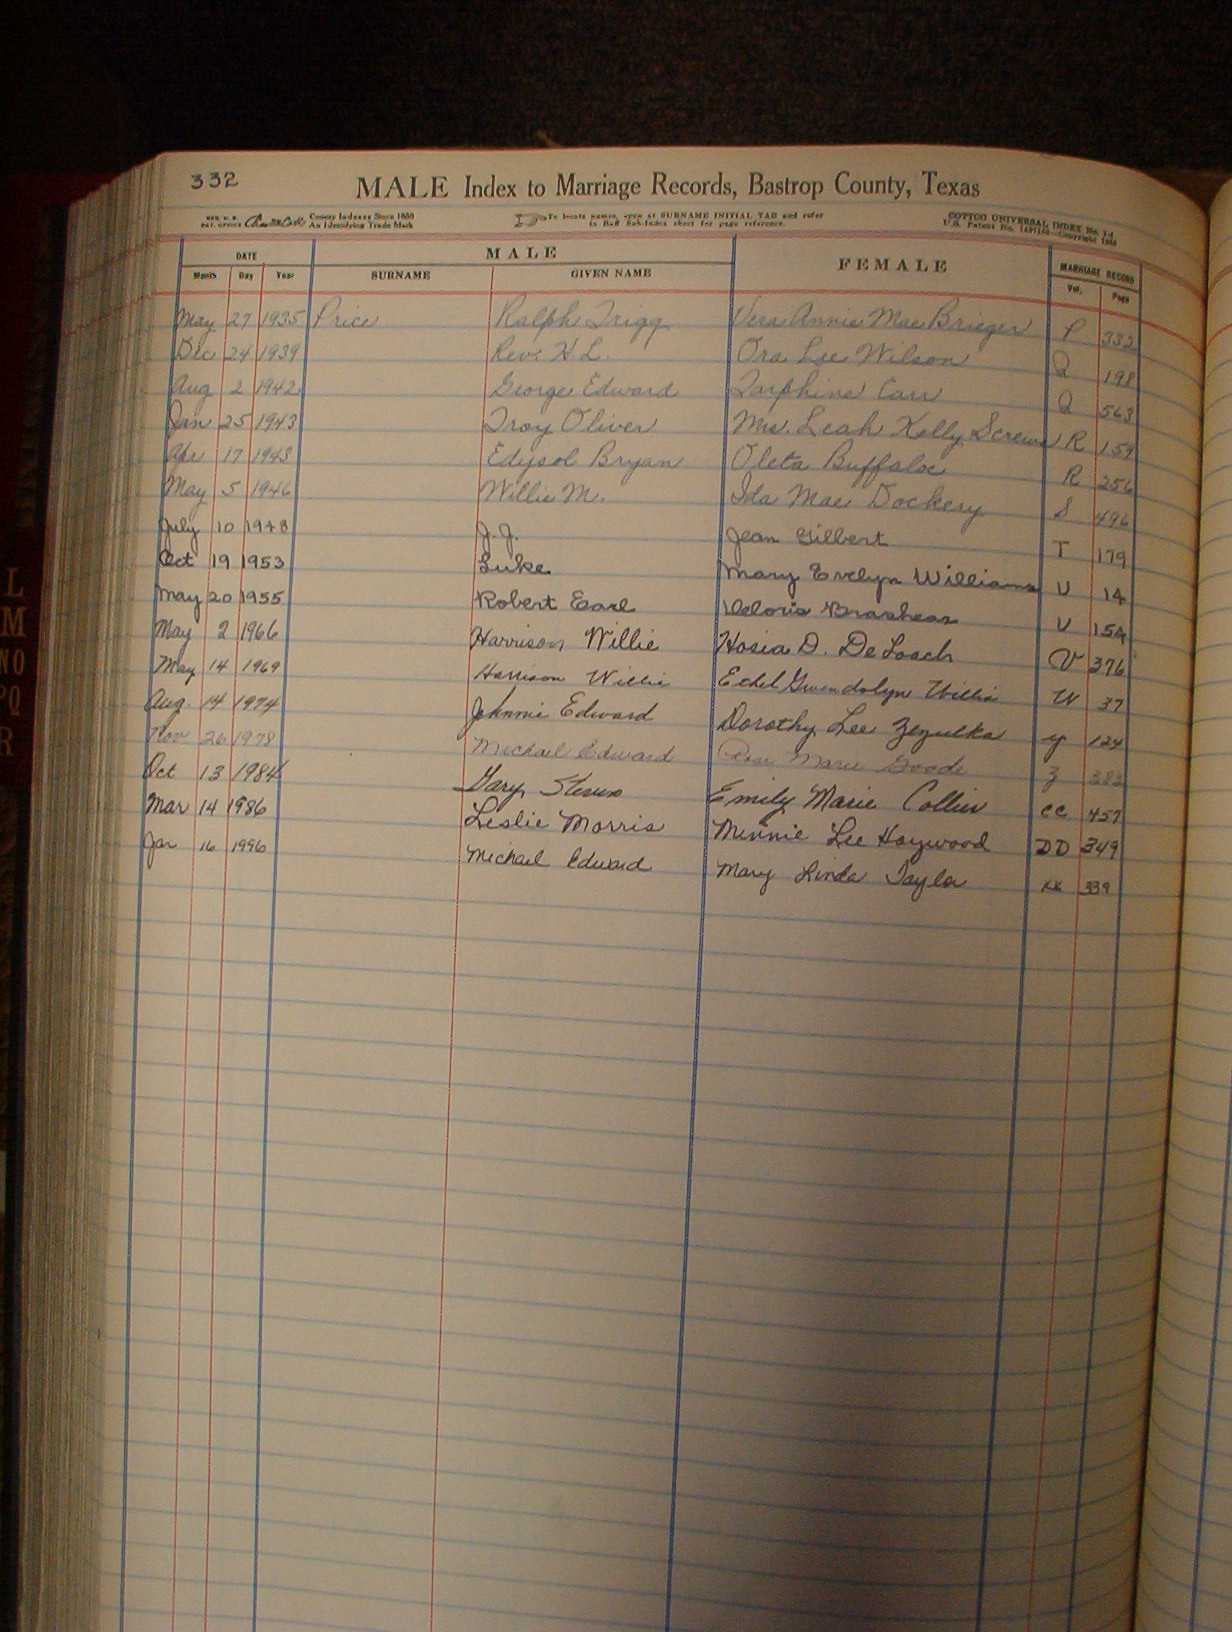 332
MALE Index to Marriage Records, Bastrop County, Texas
County Indexes Since 1888
An Identifying Trade Mark
To locate names, open at SURNAME INITIAL TAB and refer
to Buff Sub-Index sheet for page reference.
COTTCO UNIVERSAL INDEX No.
U.S. Patent No. Copyright
DATE MALE FEMALE MARRIAGE RECORD
Month Day Year SURNAME GIVEN NAME Vol. Page
May 27 1935 Price Ralph Trigg Vera Annie Mae Brieger P 332
Dec 24 1939 Rev. H. L. Ora Lee Wilson Q 198
Aug 2 1942 George Edward Carr Q 563
Jan 25 1943 Troy Oliver Mrs. Leah Kelly Screws R 159
Apr 17 1943 Edysol Bryan Oleta Buffaloe R 256
May 5 1946 Willie M. Ida Mae Dockery S 496
July 10 1948 J. J. Jean Gilbert T 179
Oct 19 1953 Luke Mary Evelyn Williams U 14
May 20 1955 Robert Earl Deloris Brashear U 154
May 2 1966 Harrison Willie Hosia D. DeLoach V 376
May 14 1969 Harrison Willie Ethel Gwendolyn Willis W 37
Aug. 14 1974 Johnnie Edward Dorothy Lee Zezulka Y 124
Nov 26 1978 Michael Edward Rose Marie Goode Z 383
Oct 13 1984 Gary Steven Emily Marie Collier CC 457
Mar 14 1986 Leslie Morris Minnie Lee Haywood DD 349
Jan 16 1996 Michael Edward Mary Linda Taylor KK 339
L
M
NO
PQ
R